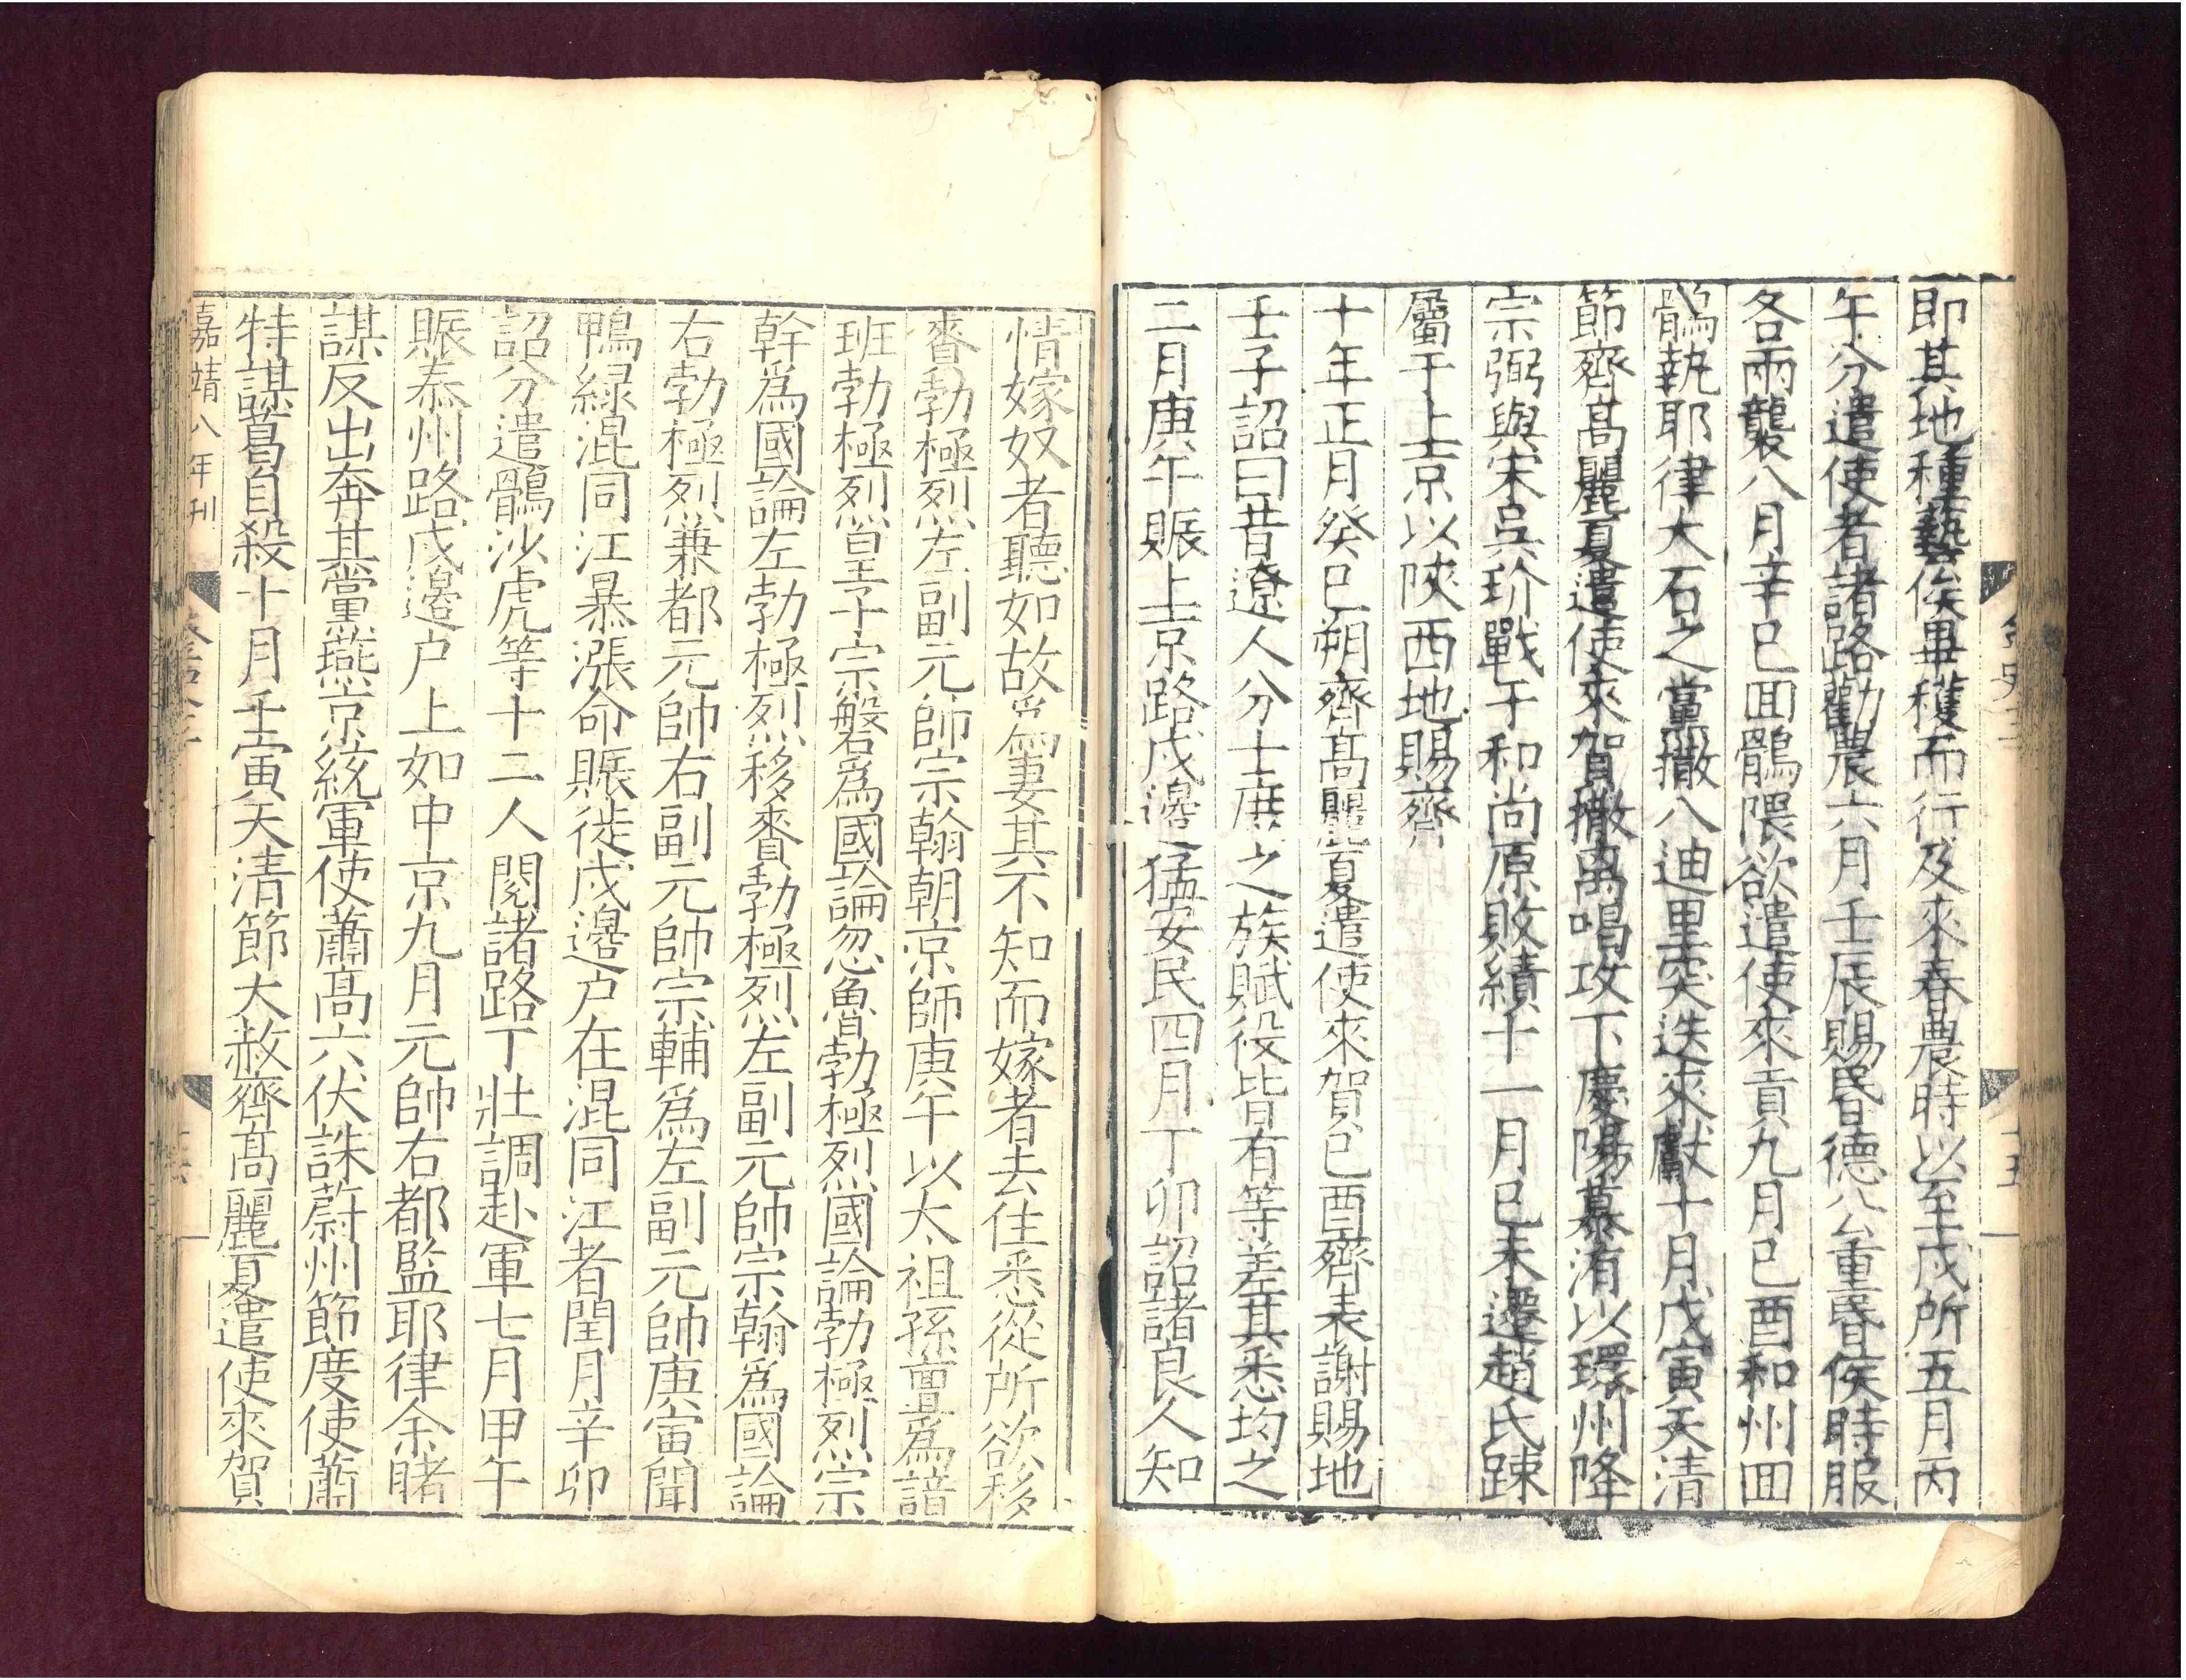 金史三
十五
即其地種藝俟畢穫而行及來春農時以至戍所五月丙
午分遣使者諸路勸農六月壬辰賜昏德公重昏侯時服
各兩襲八月辛巳回鶻隈欲遣使來貢九月己酉和州回
鶻執耶律大石之黨撒八迪里突迭來獻十月戊寅天清
節齊髙麗夏遣使來賀撒离喝攻下慶陽慕洧以環州降
宗弼與宋吳玠戰于和尚原敗績十一月己未遷趙氏踈
屬于上京以陝西地賜齊
十年正月癸巳朔齊髙麗夏遣使來賀己酉齊表謝賜地
壬子詔曰昔遼人分士庶之族賦役皆有等差其悉均之
二月庚午賑上京路戍邊猛安民四月丁卯詔諸良人知
情嫁奴者聽如故爲妻其不知而嫁者去住悉從所欲移
賚勃極烈左副元帥宗翰朝京師庚午以太祖孫亶爲諳
班勃極烈皇子宗磐爲國論忽魯勃極烈國論勃極烈宗
幹爲國論左勃極烈移賚勃極烈左副元帥宗翰爲國論
右勃極烈兼都元帥右副元帥宗輔爲左副元帥庚寅聞
鴨綠混同江暴漲命賑徙戍邊户在混同江者閏月辛卯
詔分遣鶻沙虎等十二人閱諸路丁壯調赴軍七月甲午
賑泰州路戍邊户上如中京九月元帥右都監耶律余睹
謀反出奔其黨燕京統軍使蕭髙六伏誅蔚州節度使蕭
特謀葛自殺十月壬寅天清節大赦齊髙麗夏遣使來賀
嘉靖八年刊